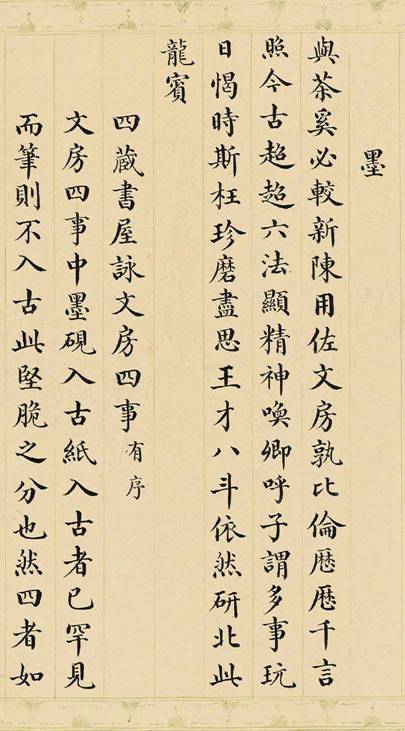 墨
與茶奚必較新陳用佐文房孰比倫歷歷千言
照今古超超六法顯精神喚卿呼子謂多事玩
日愒時斯枉珍磨盡思王才八斗依然研北此
龍賓
四藏書屋詠文房四事有序
文房四事中墨硯入古紙入古者已罕見
而筆則不入古此堅脆之分也然四者如